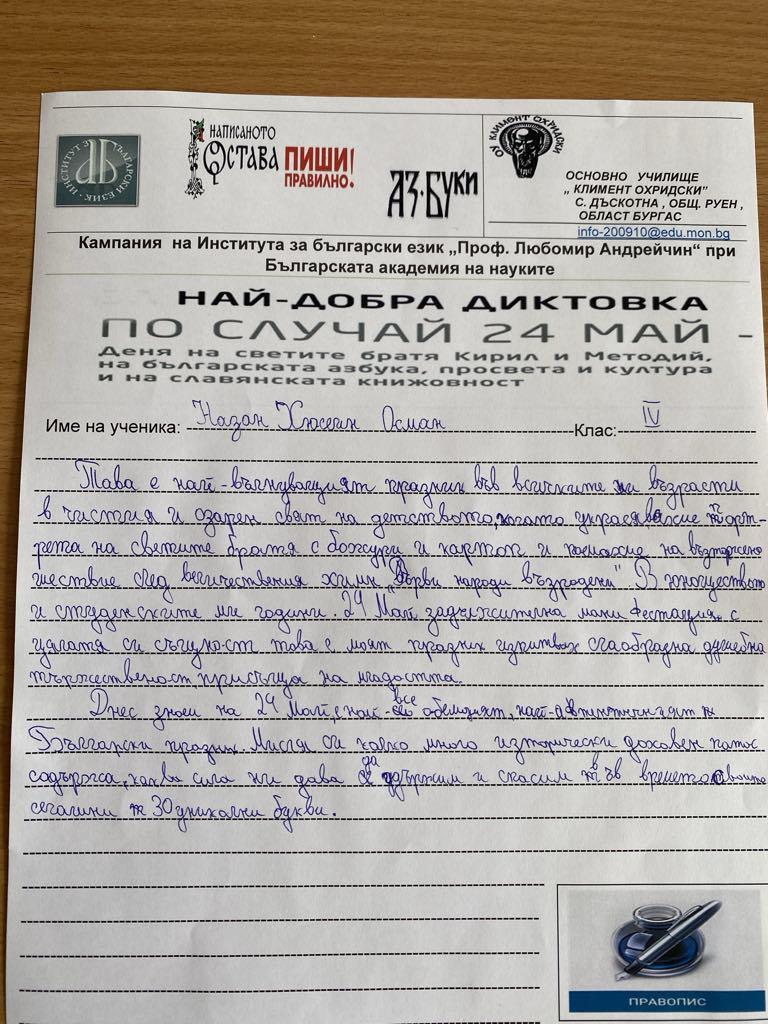 ИНСТИТУТ ЗА БЪЛГАРСКИ ЕЗИК
НАПИСАНОТО
ОСТАВА ПИШИ!
ПРАВИЛНО.
АЗ·БУКИ
ОУ КЛИМЕНТ ОХРИДСКИ
ОСНОВНО УЧИЛИЩЕ
„ КЛИМЕНТ ОХРИДСКИ"
С. ДЪСКОТНА , ОБЩ. РУЕН ,
ОБЛАСТ БУРГАС
info-200910@edu.mon.bg
Кампания на Института за български език „Проф. Любомир Андрейчин“ при
Българската академия на науките
НАЙ-ДОБРА ДИКТОВКА
ПО СЛУЧАЙ 24 МАЙ -
Деня на светите братя Кирил и Методий,
на българската азбука, просвета и култура
и на славянската книжовност
Име на ученика: Назан Хюсеин Осман Клас: IV
Това е най-вълнуващият празник във всичките ни възрасти
в чистия и озарен свят на детството, когато украсявахме порт-
рета на светите братя с божури и картон и на възторжено
шествие след величествения химн „Върви народи възродени" В юношеството
и студенските ми години. 24 Май задължителна мани фестация. с
цялата си същност това е моят празник изпитвах сгаобразна душевна
тържественост присъща на младостта.
Днес знаеш на 24 Май, е най - все обемният, най-
Български празник. Мисля си колко много изторически доховен патос
содържа, каква сила ни дава да одържим и спасим във времето своите
сегашни 30 уникални букви.
ПРАВОПИС